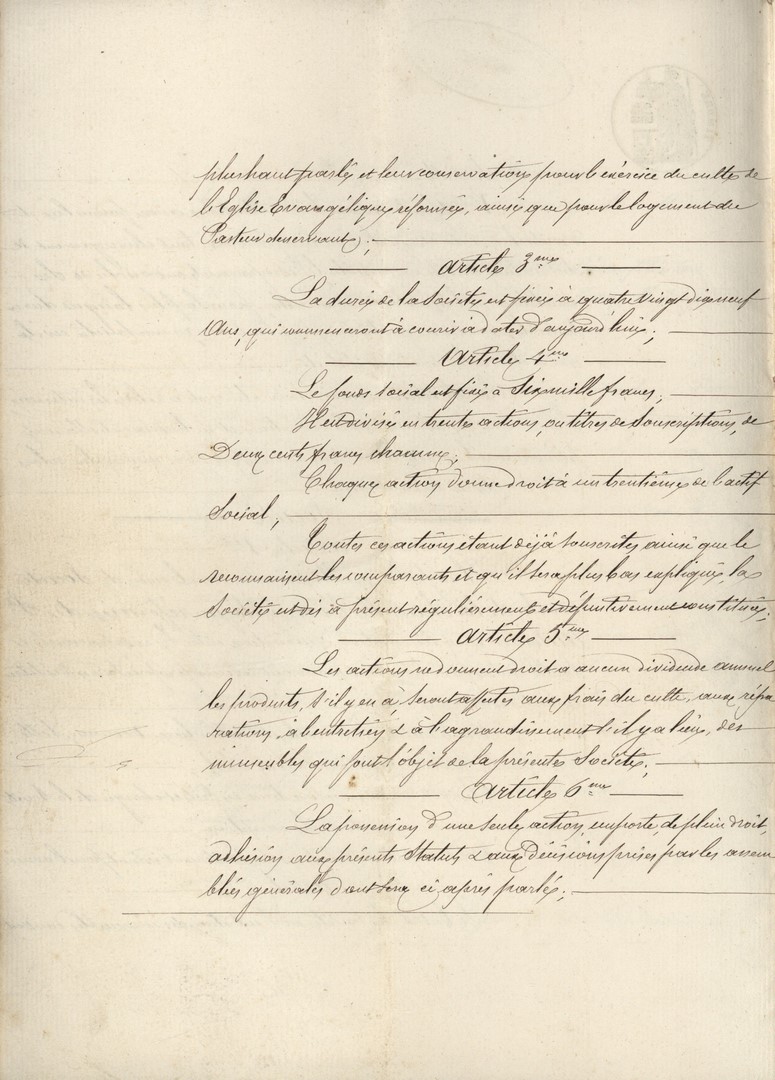 plus haut parlés et leur conservation, pour le exercice du culte de
l'Eglise Evangélique réformée, ainsi que pour le logement du
Pasteur desservant;
Article 3eme
La durée de la Société est fixée à quatre vingt dix neuf
Ans, qui commenceront à courir à dater d'aujourd'hui;
Article 4me
Le fonds social est fixé à Six mille francs,
Il est divisé en trente actions, ou titres de Souscriptions, de
Deux cents francs chacune;
Chaque action donne droit à un trentième de l'actif
Social;
Toutes ces actions étant déjà souscrites ainsi que le
reconnaissent les comparants et qu'il sera plus bas expliqué, la
Société est dès à présent régulièrement et définitivement constituée;
Article 5eme
Les actions ne donnent droit a aucun dividende annuel
les produits, s'il y en à, seront affectés aux frais du culte, aux répa
rations, à l'entretien & à l'agrandissement s'il y a lieu, des
immeubles qui font l'objet de la présente Société;
Article 6me
La possession d'une seule action, emporte, de plein droit,
adhésion aux présents Statuts & aux décisions prises par les assem
blées générales dont sera ci après parlé;